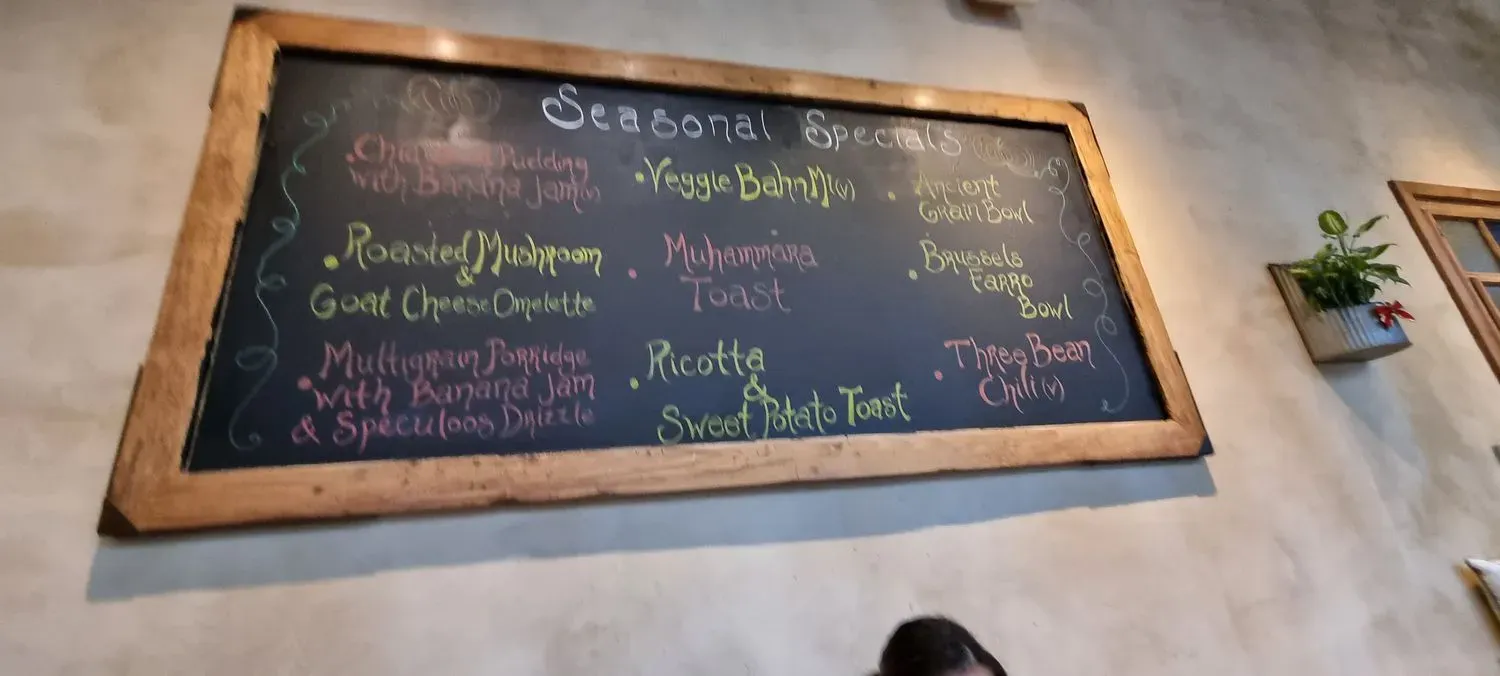 Seasonal Specials
Pudding
with Banana Jam(v)
Roasted Mushroom
&
Goat Cheese Omelette
Multigrain Porridge
with Banana Jam
& Speculoos Drizzle
Veggie BahnMi(v)
Muhammara
Toast
Ricotta
&
Sweet Potato Toast
Ancient
Grain Bowl
Brussels
Farro
Bowl
Three Bean
Chili(v)